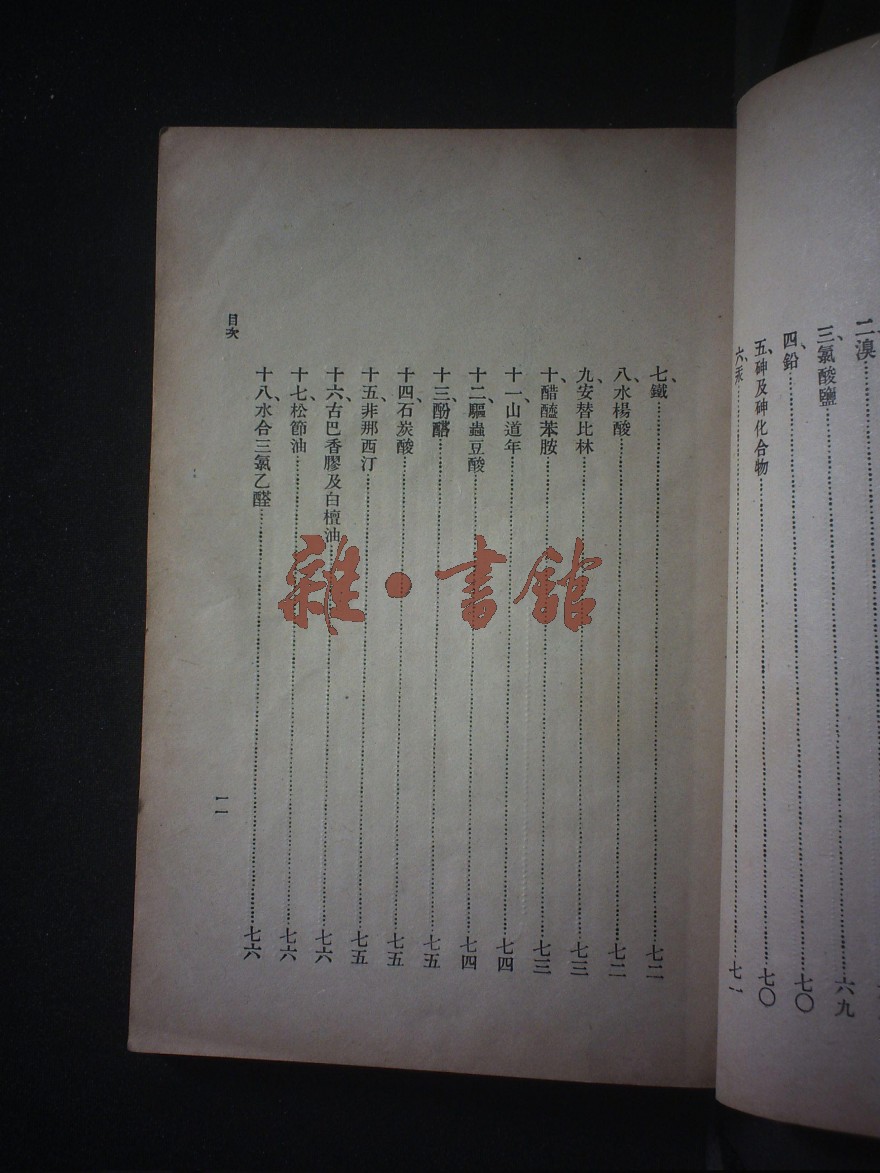 二、溴
三、氯酸鹽……六九
四、鉛……七〇
五、砷及砷化合物……七〇
六、汞……七一
七、鐵……七二
八、水楊酸……七二
九、安替比林……七三
十、醋醯苯胺……七三
十一、山道年……七四
十二、驅蟲豆酸……七四
十三、酚醛……七五
十四、石炭酸……七五
十五、非那西汀……七五
十六、古巴香膠及白檀油……七六
十七、松節油……七六
十八、水合三氯乙醛……七六
目次
一一
雜·書館